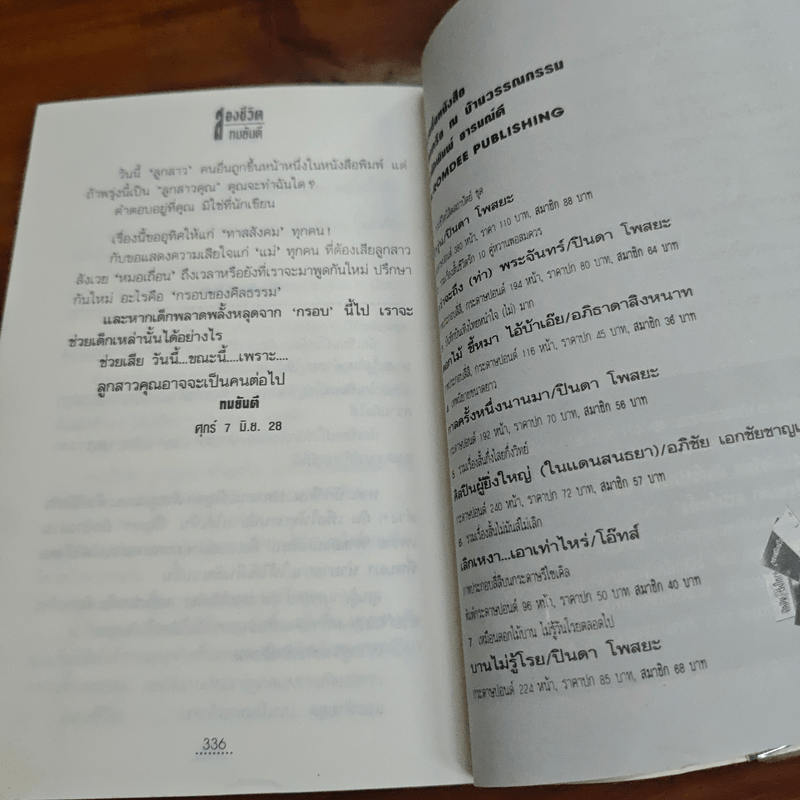 องชีวิต
ทมยันตี
วันนี้ 'ลูกสาว' คนอื่นถูกขึ้นหน้าหนึ่งในหนังสือพิมพ์ แต่
ถ้าพรุ่งนี้เป็น 'ลูกสาวคุณ' คุณจะทำฉันใด ?
คำตอบอยู่ที่คุณ มิใช่ที่นักเขียน
เรื่องนี้ขออุทิศให้แก่ 'ทาสสังคม' ทุกคน !
กับขอแสดงความเสียใจแก่ 'แม่' ทุกคน ที่ต้องเสียลูกสาว
สังเวย 'หมอเถื่อน' ถึงเวลาหรือยังที่เราจะมาพูดกันใหม่ ปรึกษา
กันใหม่ อะไรคือ 'กรอบของศีลธรรม'
และหากเด็กพลาดพลั้งหลุดจาก 'กรอบ' นี้ไป เราจะ
ช่วยเด็กเหล่านั้นได้อย่างไร
ช่วยเสีย วันนี้...ขณะนี้....เพราะ....
ลูกสาวคุณอาจจะเป็นคนต่อไป
ทมยันตี
ศุกร์ 7 มิ.ย. 28
336
ณ บ้านวรรณกรรม
อารมณ์ดี
ROMDEE PUBLISHING
/ปินดา โพสยะ
380 หน้า, ราคา 110 บาท, สมาชิก 88 บาท
10 คู่หวานพอสมควร
(ท่า) พระจันทร์/ปินดา โพสยะ
กระดาษปอนด์ 194 หน้า, ราคาปก 80 บาท, สมาชิก 64 บาท
(ไม่) มาก
ขี้หมา ไอ้บ้าเอ๊ย/อภิธาดาสิงหนาท
กระดาษปอนด์ 116 หน้า, ราคาปก 45 บาท, สมาชิก 36 บาท
กาลครั้งหนึ่งนานมา/ปินดา โพสยะ
กระดาษปอนด์ 192 หน้า, ราคาปก 70 บาท, สมาชิก 56 บาท
5 รวมเรื่องสั้นกึ่งไสยกึ่งวิทย์
ศิลปินผู้ยิ่งใหญ่ (ในแดนสนธยา)/อภิชัย เอกชัยชาญ
กระดาษปอนด์ 240 หน้า, ราคาปก 72 บาท, สมาชิก 57 บาท
6 รวมเรื่องสั้นไม่มันส์ไม่เลิก
เลิกเหงา...เอาเท่าไหร่/โอ๊ทส์
ภาพประกอบสี่สีบนกระดาษรีไซเคิล
พิมพ์กระดาษปอนด์ 96 หน้า, ราคาปก 50 บาท สมาชิก 40 บาท
7 เหมือนดอกไม้บาน ไม่รู้วันโรยตลอดไป
บานไม่รู้โรย/ปินดา โพสยะ
กระดาษปอนด์ 224 หน้า, ราคาปก 85 บาท, สมาชิก 68 บาท